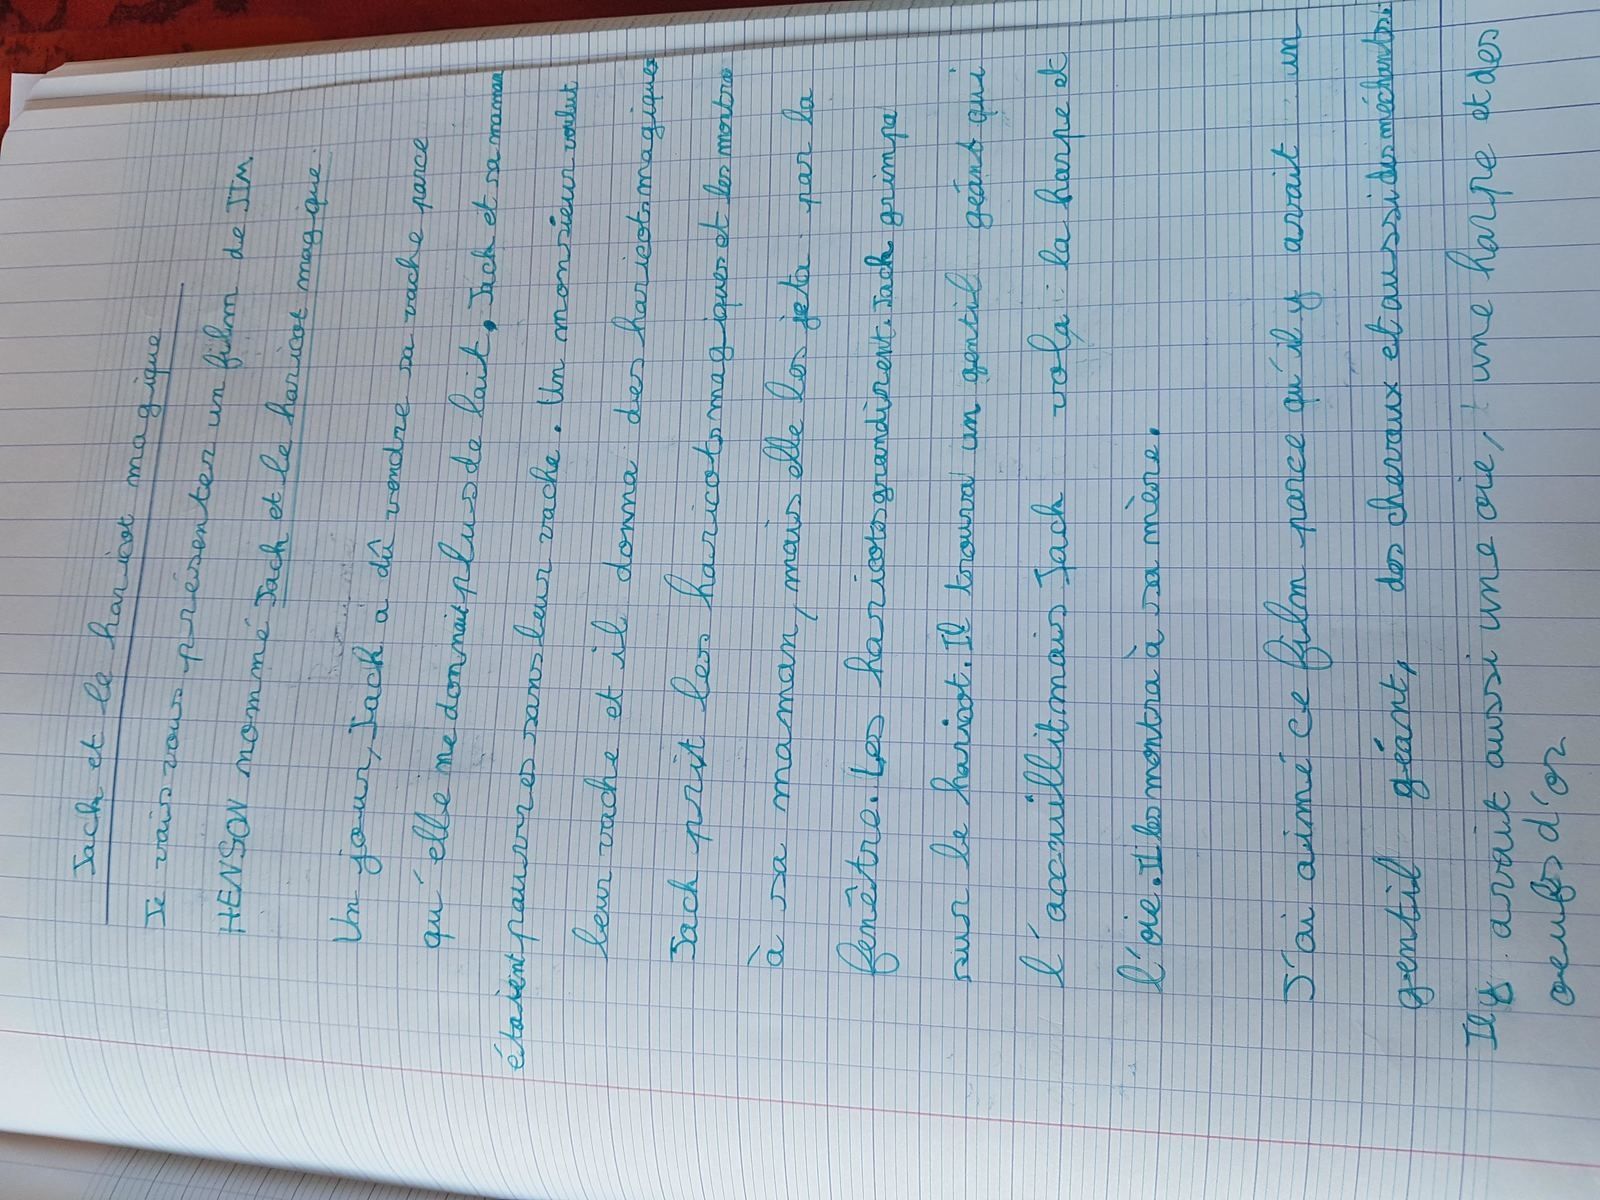 Jack et le haricot magique
Je vais vous présenter un film de JIM
HENSON nommé Jack et le haricot magique.
Un jour, Jack a dû vendre sa vache parce
qu'elle ne donnait plus de lait. Jack et sa maman
étaient pauvres sans leur vache. Un monsieur voulut
leur vache et il donna des haricots magiques
Jack prit les haricots magiques et les montra
à sa maman, mais elle les jeta par la
fenêtre. Les haricots grandirent. Jack grimpa
sur le haricot. Il trouva un gentil géant qui
l'accuillit mais Jack vola la harpe et
l'oie. Il les montra à sa mère.
J'ai aimé ce film parce qu'il y avait un
gentil géant, des chevaux et aussi des méchants.
Il y avait aussi une oie, une harpe et des
oeufs d'or